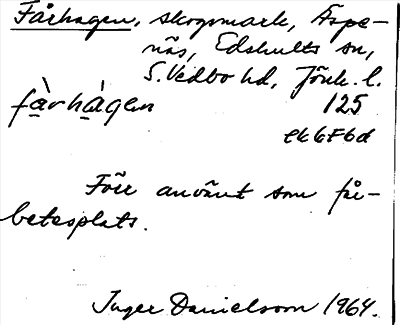 Fårhagen, skogsmark, Äspe-
näs, Edshults sn,
S. Vedbo hd, Jönk. l.
fà̱rhá̱gen 125
ek6F6d
Förr använt som får-
betesplats.
Inger Danielsson 1964.